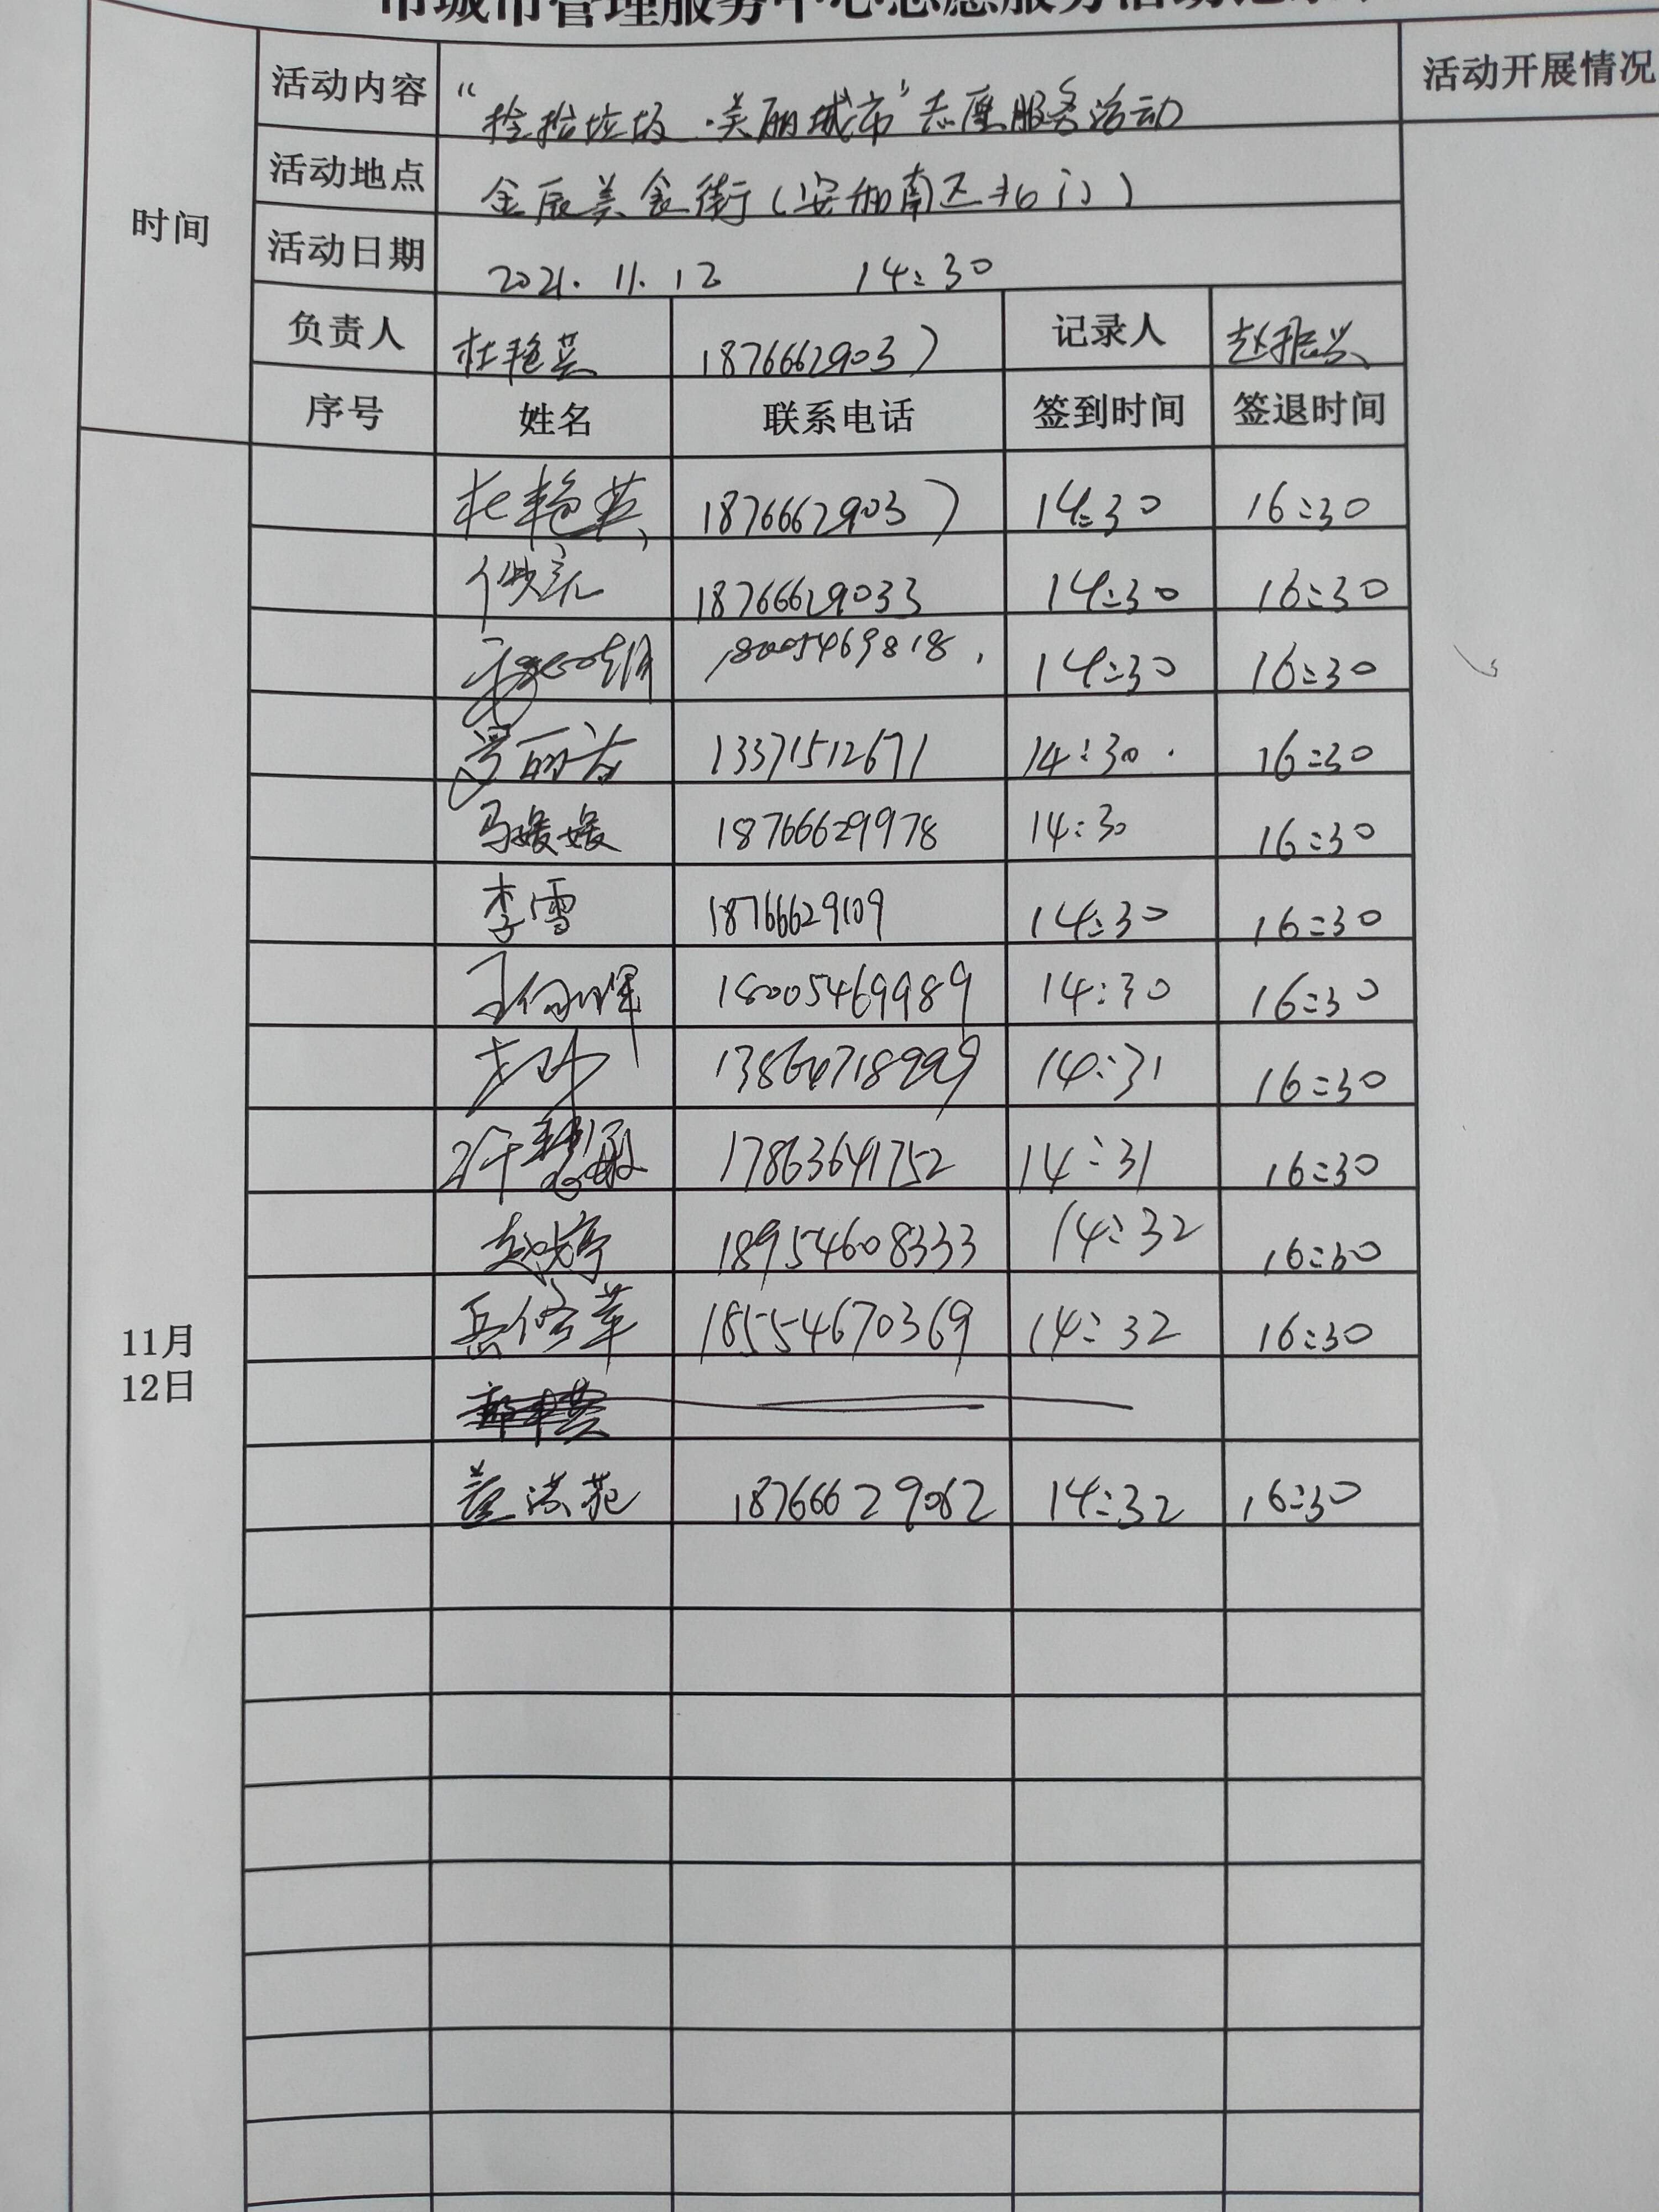 市城市管理服务中心志愿服务活动记录
活动内容 “捡捡垃圾·美丽城市”志愿服务活动 活动开展情况
时间
活动地点 金辰美食街(安和南区北门)
活动日期 2021.11.12 14:30
负责人 杜艳英 18766629037 记录人 赵振兴
序号 姓名 联系电话 签到时间 签退时间
杜艳英 18766629037 14:30 16:30
18766629033 14:30 16:30
18005469818 14:30 16:30
13371512671 14:30 16:30
马媛媛 18766629978 14:30 16:30
李雪 18766629109 14:30 16:30
18005469989 14:30 16:30
13864718999 14:31 16:30
17863641752 14:31 16:30
18954608333 14:32 16:30
岳修苹 18554670369 14:32 16:30
11月
12日
18766629062 14:32 16:30